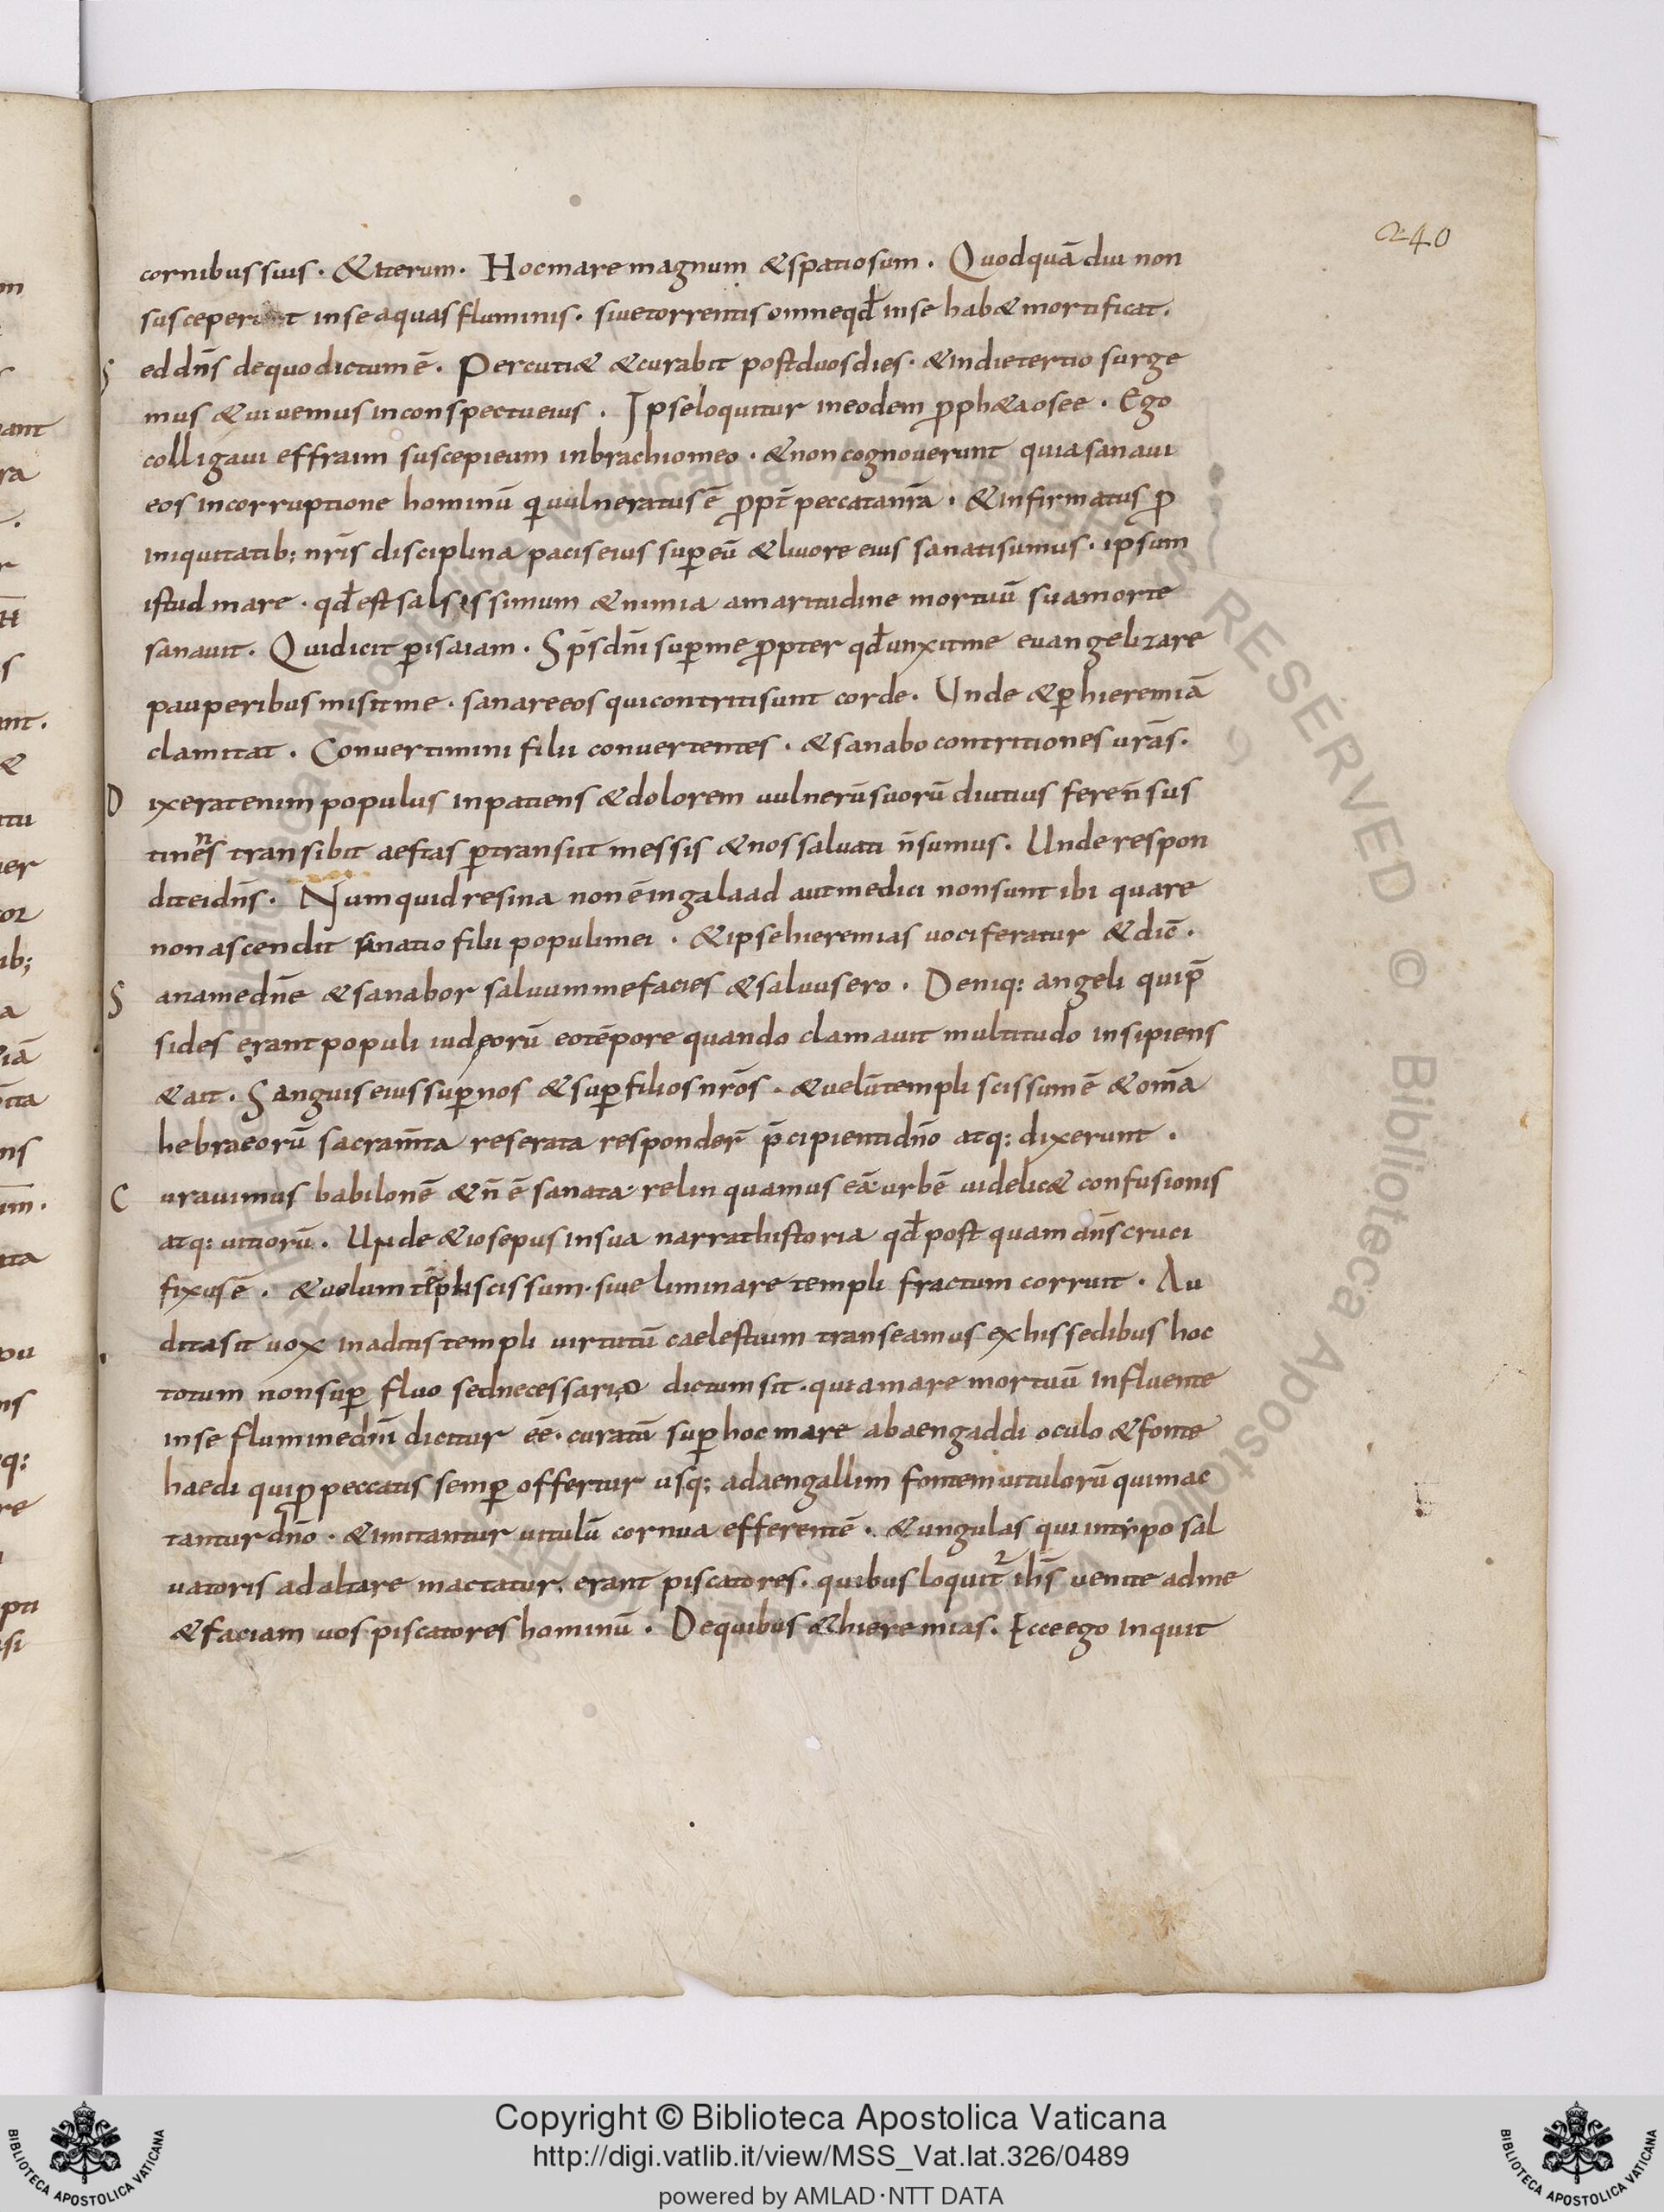 240
cornibus suis · & iterum · Hoc mare magnum & spatiosum . Quod quā diu non
susceperit in se aquas fluminis · siue torrentis omne qđ in se hab& mortificat .
Sed dn̄s de quo dictum ē . Percuti& & curabit post duos dies · & in die tertio surge
mus & uiuemus in conspectu eius . Ipse loquitur in eodem ꝓph&a osee . Ego
colligaui effraim suscepi eum in brachio meo · & non cognouerunt quia sanaui
eos in corruptione hominū qui uulneratus ē ꝓpt̄ peccata nr̄a . & infirmatus ꝓ
iniquitatib; nr̄is disciplina pacis eius suꝑ eū & liuore eius sanati sumus . ipsum
istud mare · qđ est salsissimum & nimia amaritudine mortuū sua morte
sanauit . Qui dicit ꝑ isaiam . Sp̄s dn̄i suꝑ me ꝓpter qđ unxit me euangelizare
pauperibus misit me · sanare eos qui contriti sunt corde . Unde & ꝑ hieremiā
clamitat . Conuertimini filii conuertentes · & sanabo contritiones ur̄as .
Dixerat enim populus inpatiens & dolorem uulnerū suorū diutius feren̄ sus
tinēns transibit aestas ꝑtransiit messis & nos saluati n̄ sumus . Unde respon
dit ei dn̄s . Numquid resina non ē in galaad aut medici non sunt ibi quare
non ascendit sanatio filii populi mei . & ipse hieremias uociferatur & dic̄ .
Sana me dn̄e & sanabor saluum me facies & saluus ero . Deniq: angeli qui p̄
sides erant populi iudeorū eo tēpore quando clamauit multitudo insipiens
& ait . Sanguis eius suꝑ nos & suꝑ filios nr̄os . & uelū templi scissum ē & om̄a
hebraeorū sacram̄ta reserata responder̄ p̄cipienti dn̄o atq: dixerunt .
Curauimus babilonē & n̄ ē sanata · relinquamus eā urbē uidelic& confusionis
atq: uitiorū . Unde & iosepus in sua narrat historia qđ postquam dn̄s cruci
fixus ē . & uelum tēpli scissum · siue liminare templi fractum corruit . Au
dita sit uox in aditis templi uirtutū caelestium transeamus ex his sedibus hoc
totum non suꝑfluo sed necessario dictum sit · quia mare mortuū influente
in se flumine dn̄i dicitur eē · curatū suꝑ hoc mare ab aengaddi oculo & fonte
haedi qui ꝓ peccatis semꝑ offertur usq; ad aengallim fontem uitulorū qui mac
tantur dn̄o · & imitantur uitulū cornua efferentē · & ungulas qui in typo sal
uatoris ad altare mactatur . erant piscatores · quibus loquit᷑ ih̄s uenite ad me
& faciam uos piscatores hominū . De quibus & hieremias . Ecce ego inquit
Copyright © Biblioteca Apostolica Vaticana
http://digi.vatlib.it/view/MSS_Vat.lat.326/0489
powered by AMLAD·NTT DATA